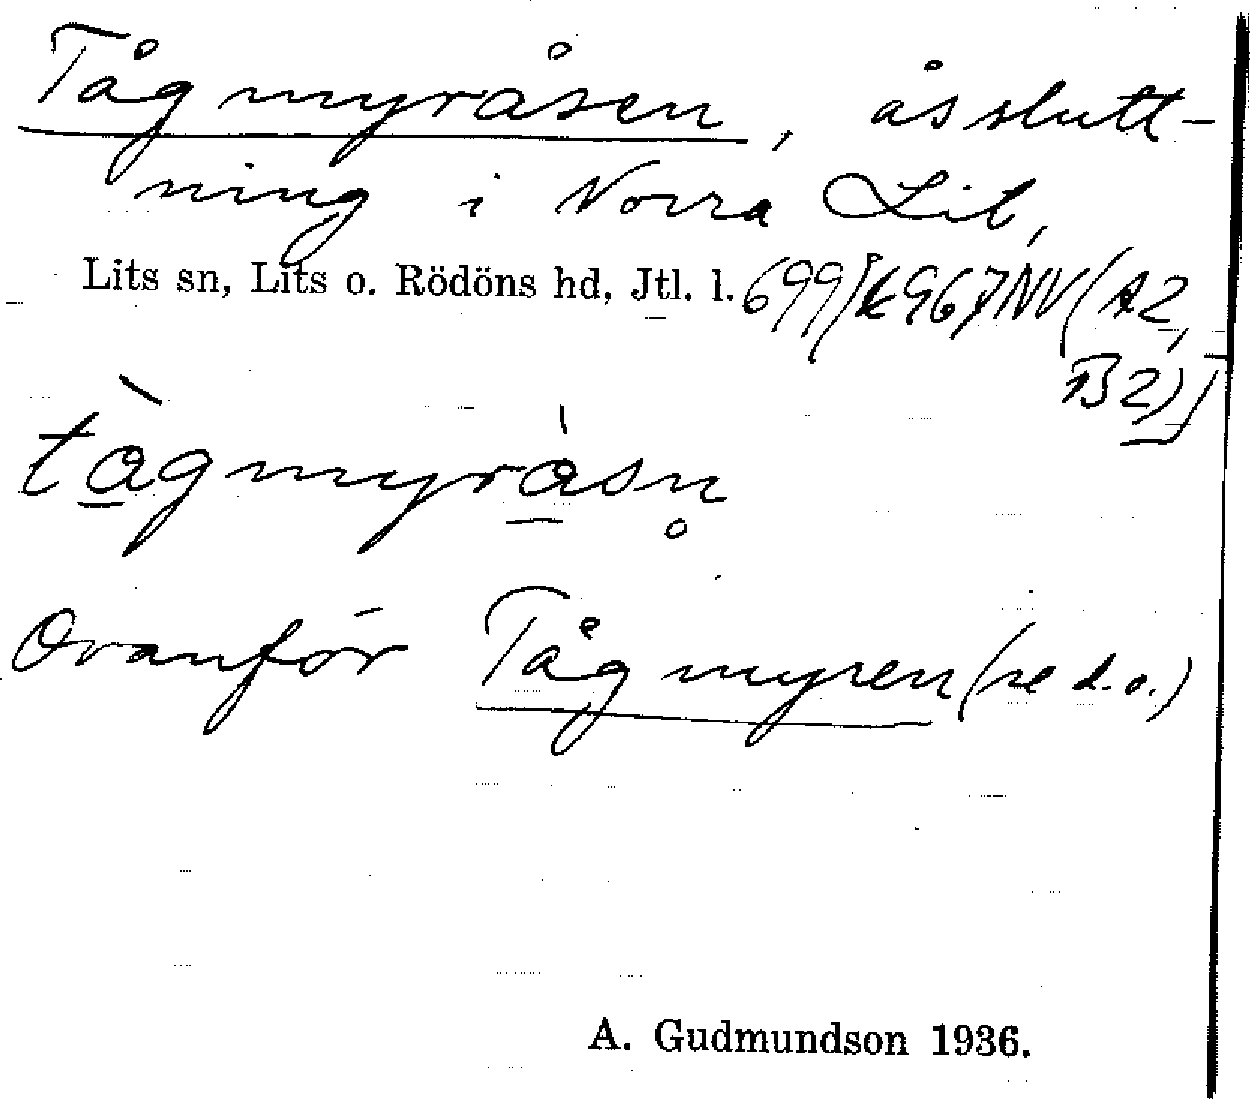 Tågmyråsen, åsslutt-
ning i Norra Lit,
Lits sn, Lits o. Rödöns hd, Jtl. l.
B2)]
tàgmyràsn̥
Ovanför Tågmyren (se d.o.)
A. Gudmundson 1936.